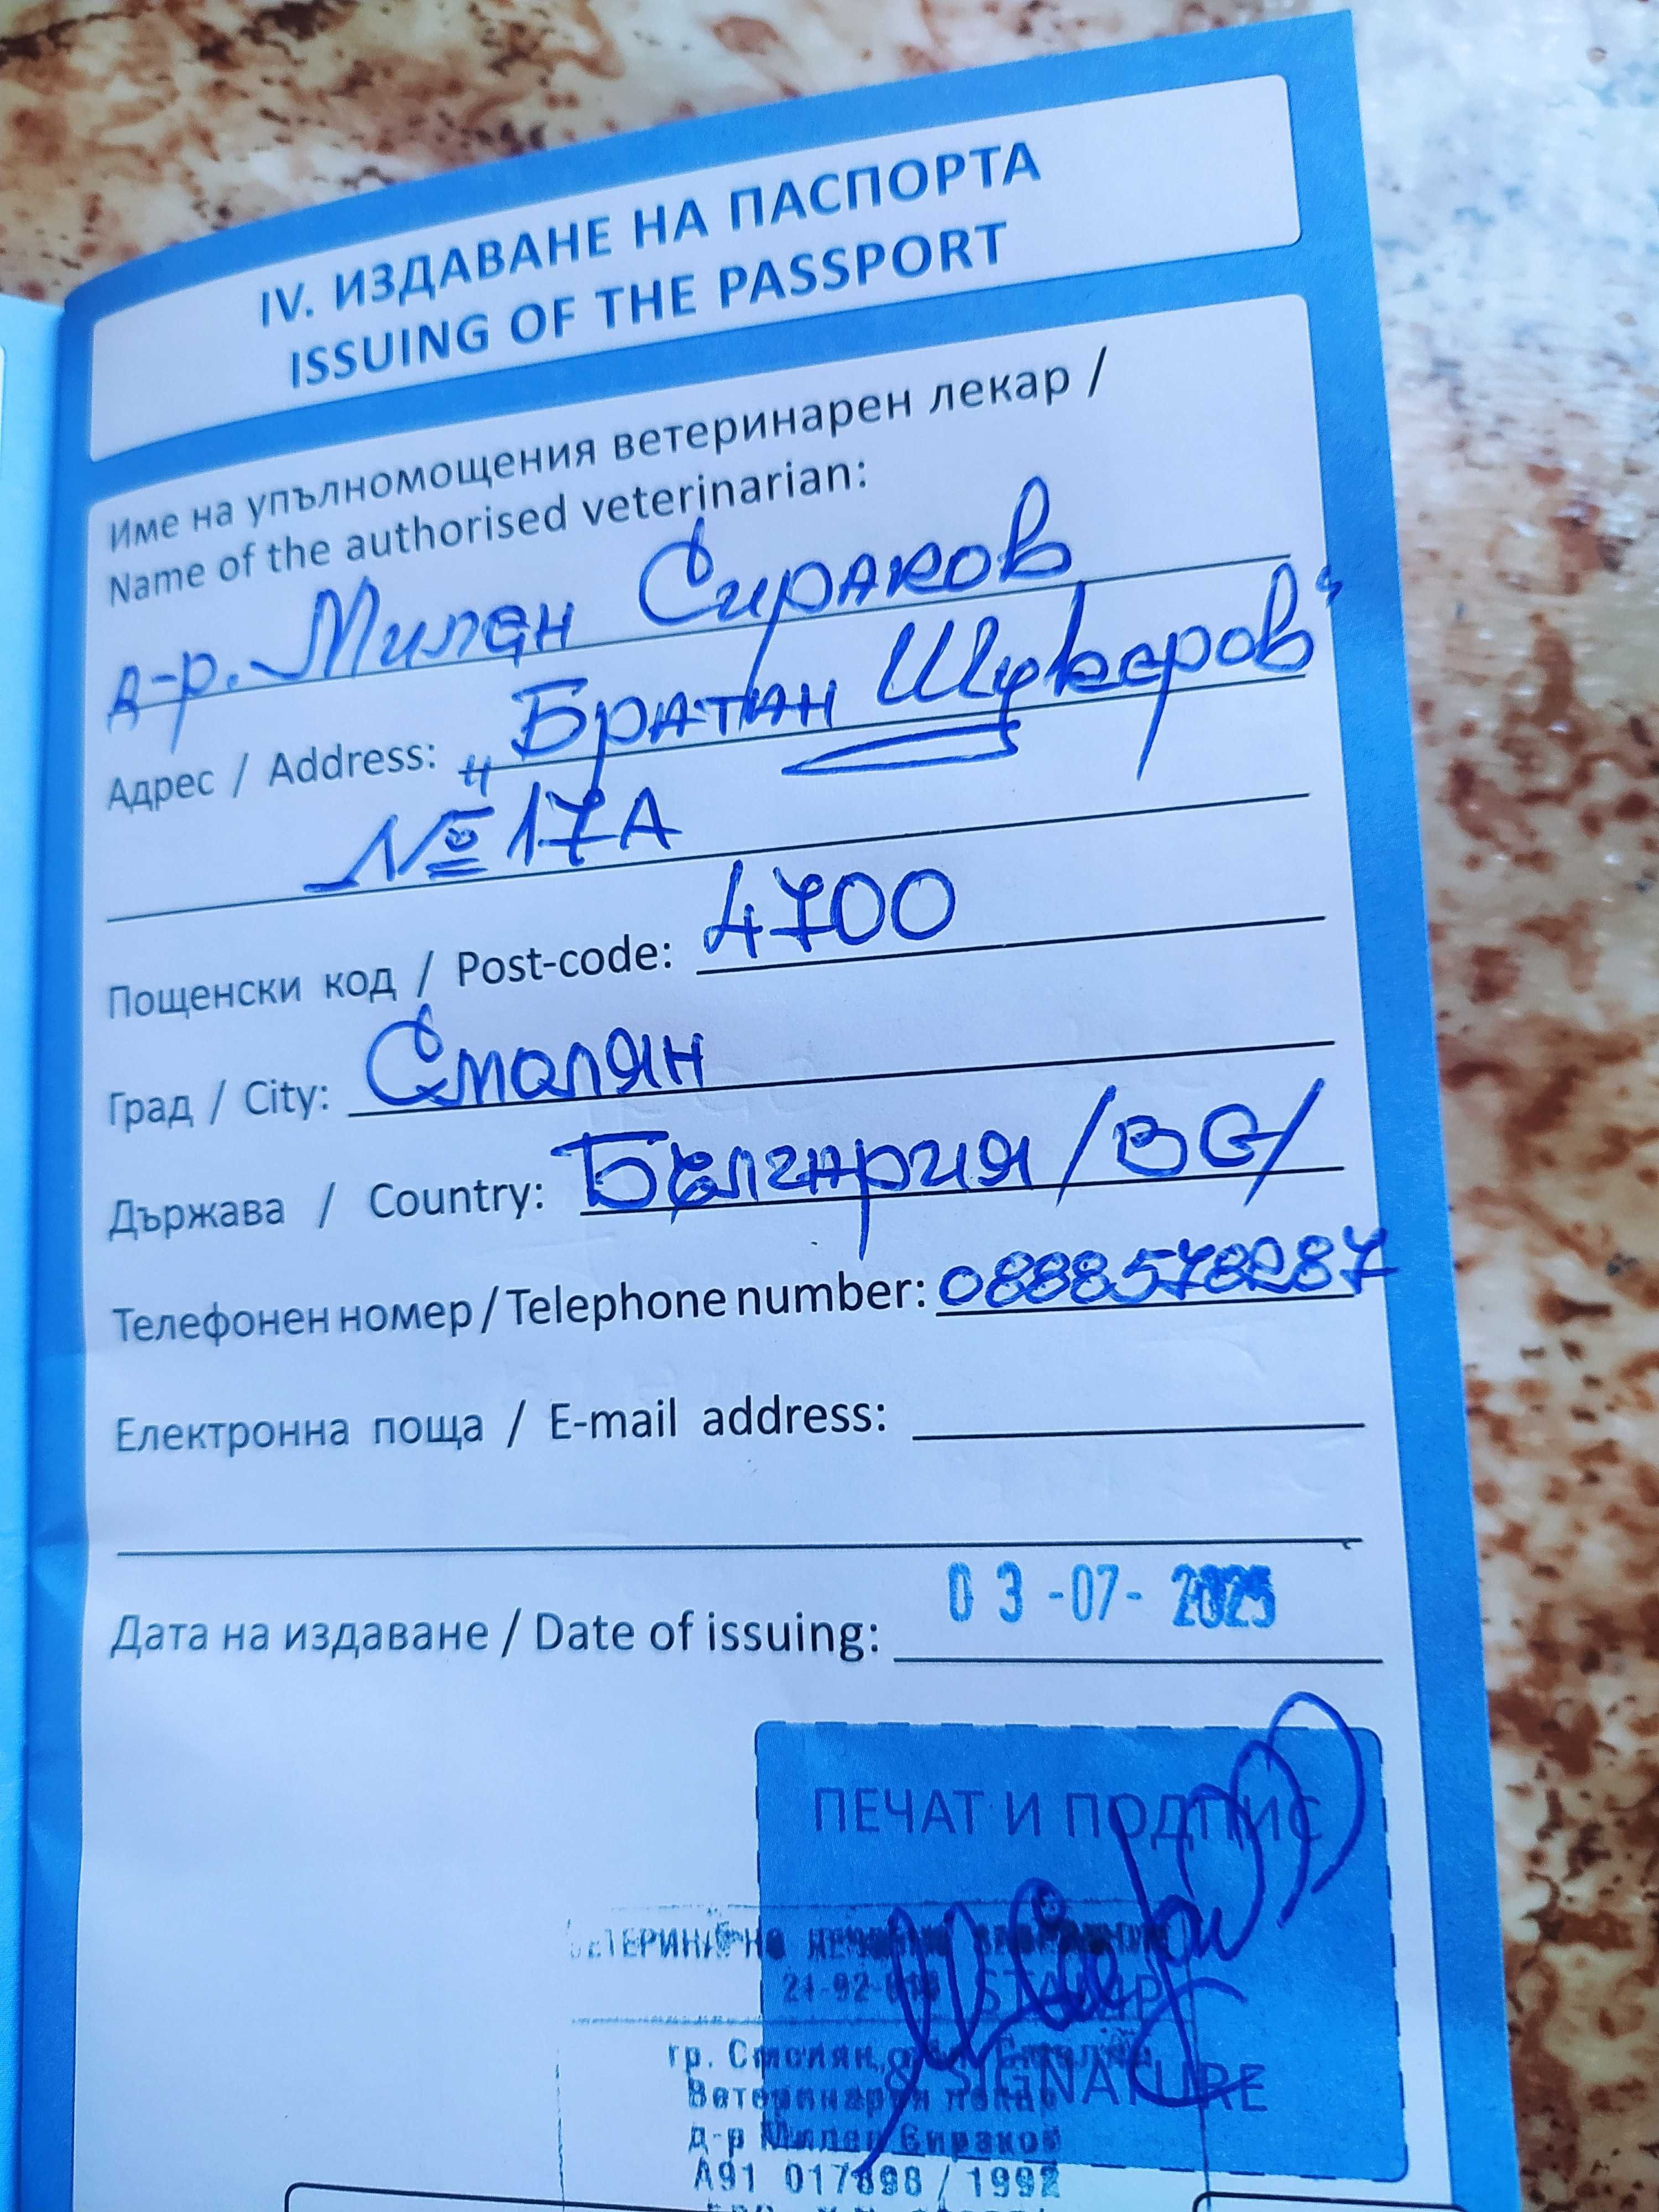 IV. ИЗДАВАНЕ НА ПАСПОРТА
ISSUING OF THE PASSPORT
Име на упълномощения ветеринарен лекар /
Name of the authorised veterinarian:
д-р. Милен Сираков
Адрес / Address: „Братан Шукеров“
№ 17А
Пощенски код / Post-code: 4700
Град / City: Смолян
Държава / Country: България /BG/
Телефонен номер / Telephone number: 0888578287
Електронна поща / E-mail address:
Дата на издаване / Date of issuing: 03-07-2025
ПЕЧАТ И ПОДПИС
STAMP
& SIGNATURE
гр. Смолян,
Ветеринарен лекар
д-р Милен Сираков
А91 017898 / 1992